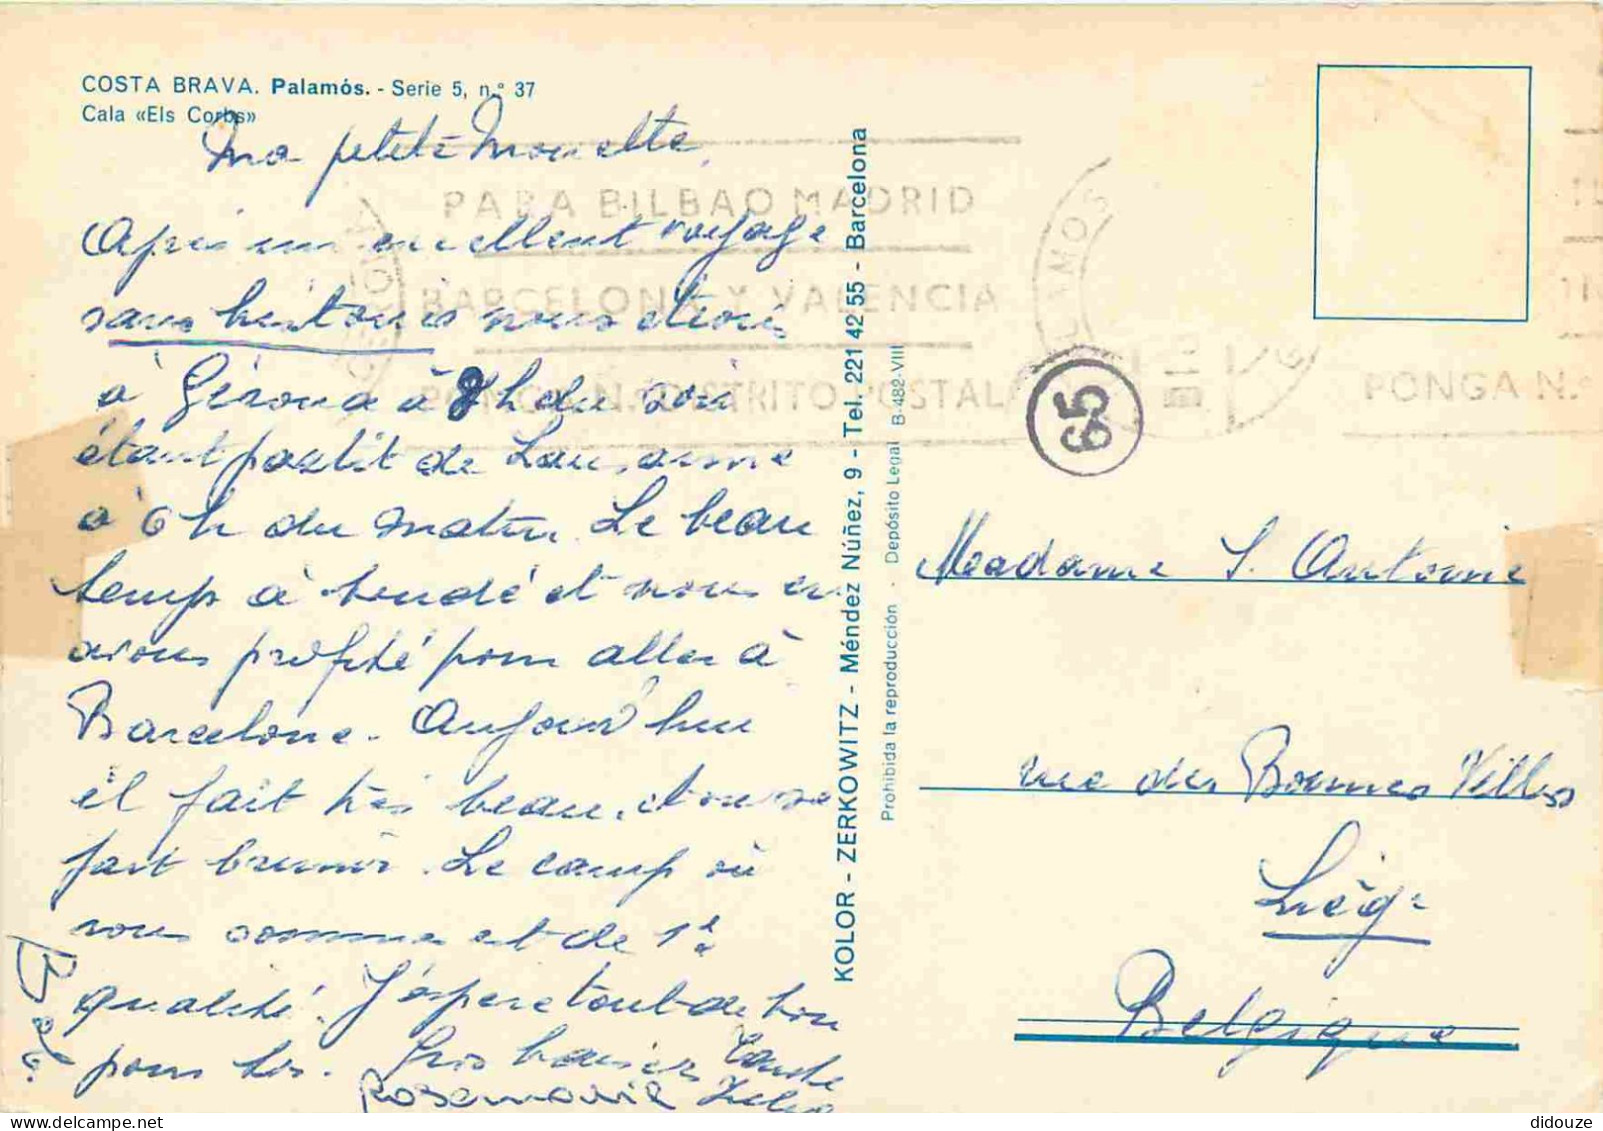 COSTA BRAVA. Palamós. - Serie 5, n.º 37
Cala «Els Corbs»
Ma petite
Après un excellent voyage
sans nous étions
à Gérona à 8h du soir
étant partit de Lausanne
à 6 h du matin. Le beau
temps à boudé et nous en
avons profité pour aller à
Barcelone. Aujour'hui
il fait très beau, et on se
fait brunir. Le camp où
nous sommes et de 1è
qualité. J'éspere tout de bon
pour toi. Gros baisers Tante
Rosemarie
PARA BILBAO MADRID
BARCELONA Y VALENCIA
PONGA N.º DISTRITO POSTAL
GERONA
PALAMOS
PONGA N.º
65
KOLOR - ZERKOWITZ - Méndez Núñez, 9 - Tel. 221 42 55 - Barcelona
Prohibida la reproducción - Depósito Legal B-482-VIII
Madame S. Antoine
rue des Bonnes Villes
Liège
Belgique
didouze / delcampe.net